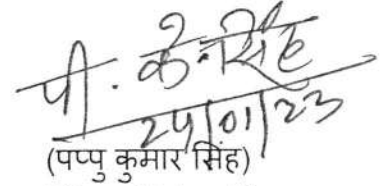 पी. के. सिंह
24/01/23
(पप्पु कुमार सिंह)